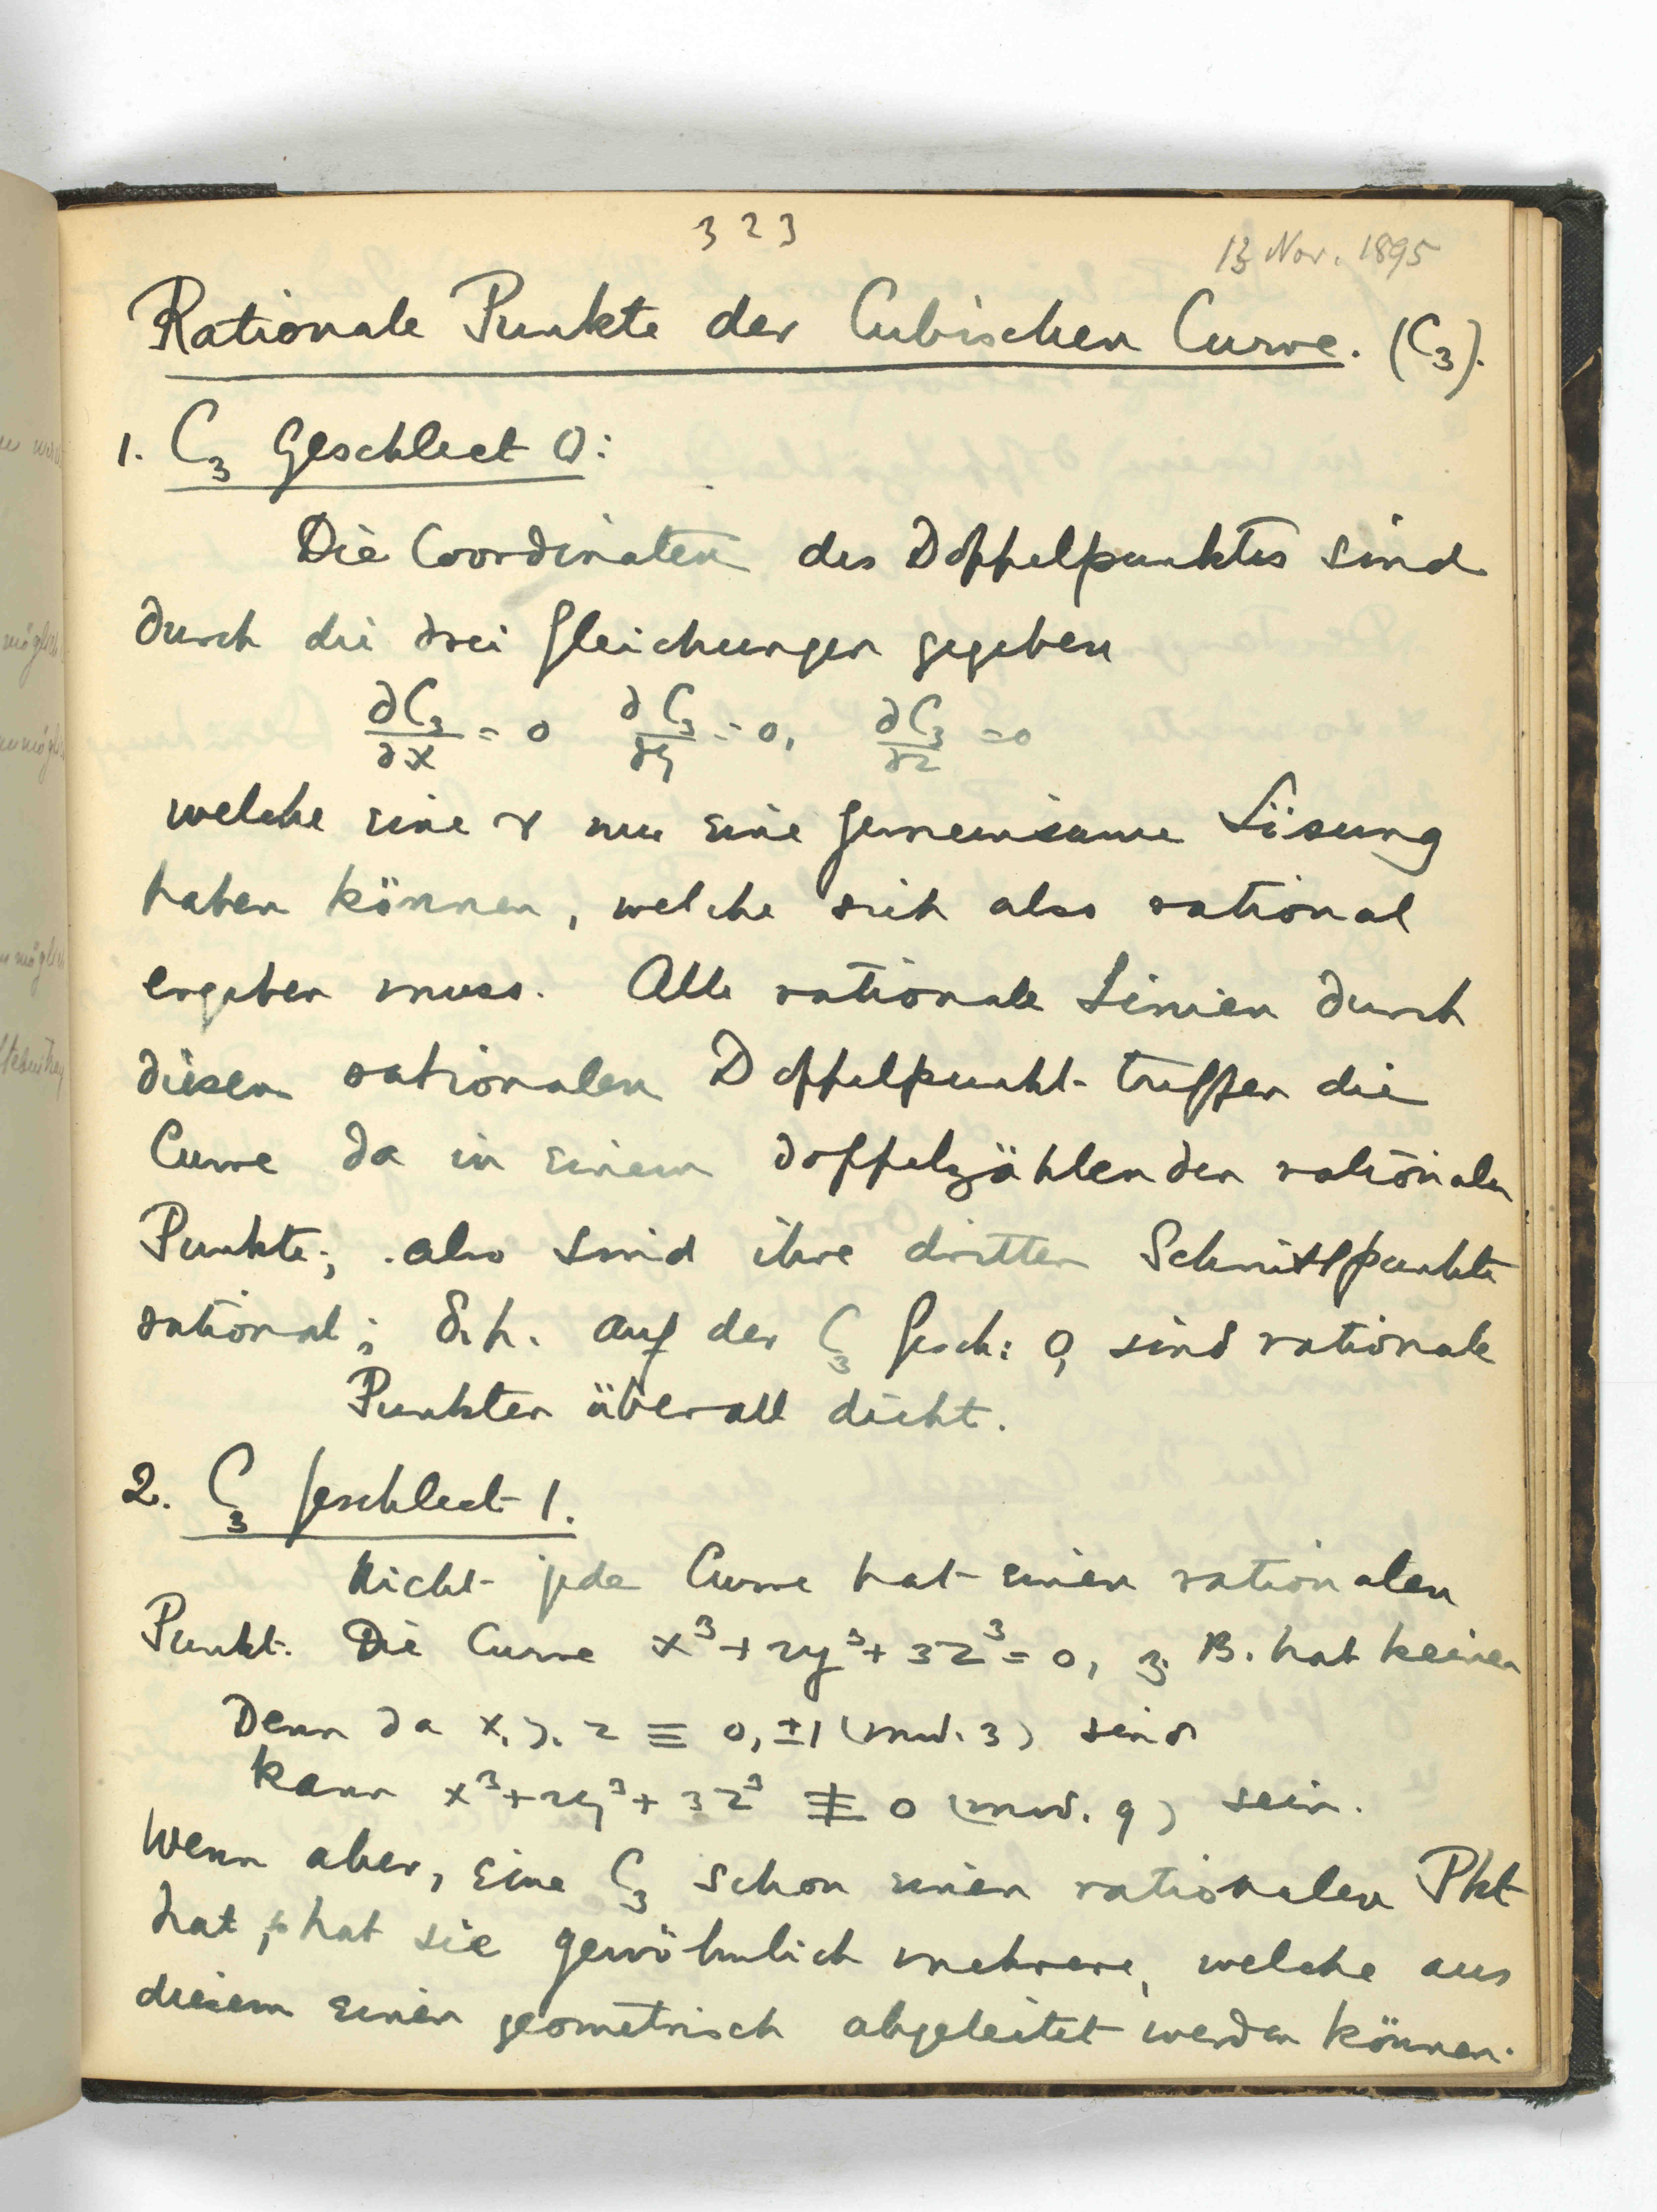 323
13 Nov. 1895
Rationale Punkte der Cubischen Curve. (C₃).
1. C₃ Geschlect 0:
Die Coordinaten des Doppelpunktes sind
durch die drei Gleichungen gegeben
∂C₃/∂x = 0 ∂C₃/∂y = 0, ∂C₃/∂z = 0
welche eine & nur eine gemeinsame Lösung
haben können, welche sich also rational
ergeben muss. Alle rationale Linien durch
diesen rationalen Doppelpunkt treffen die
Curve da in einem doppelzählenden rationalen
Punkte; also sind ihre dritten Schnittpunkte
rational; d.h. auf der C₃ Gesch: 0, sind rationale
Punkten überall dicht.
2. C₃ Geschlect 1.
Nicht jede Curve hat einen rationalen
Punkt. Die Curve x³+2y³+3z³=0, z. B. hat keinen
Denn da x, y, z ≡ 0, ±1 (mod. 3) sind
kann x³+2y³+3z³ ≢ 0 (mod. 9) sein.
Wenn aber, eine C₃ schon einen rationalen Pkt
hat, so hat sie gewöhnlich mehrere, welche aus
diesem einen geometrisch abgeleitet werden können.